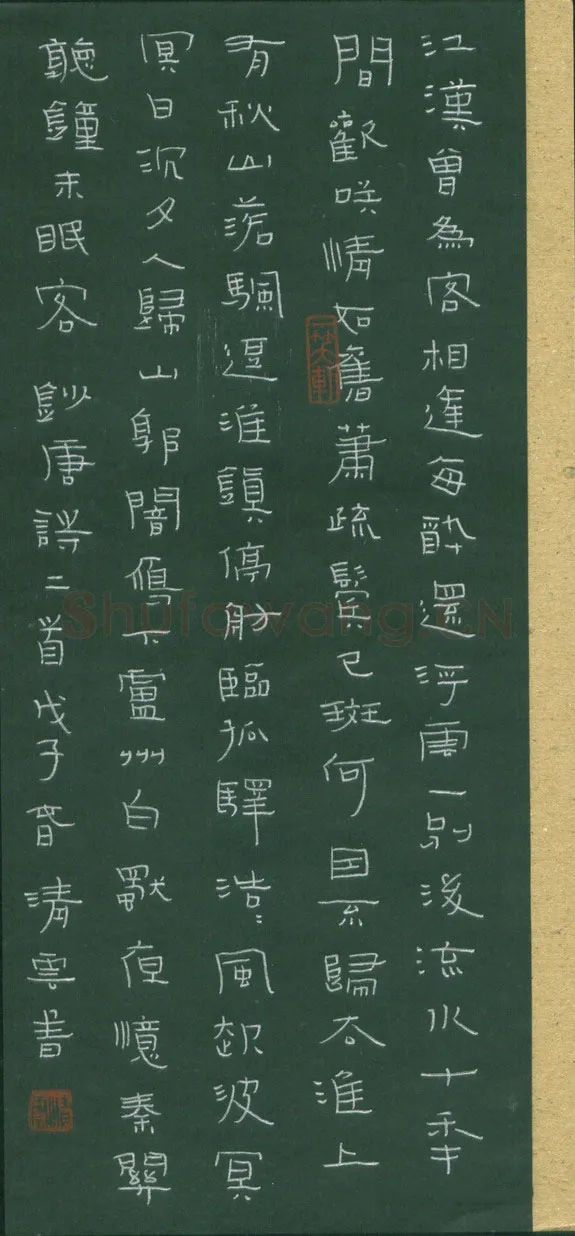 江漢曾為客相逢每醉還浮雲一別後流水十年
間歡咲情如舊蕭疏鬢已斑何因不歸去淮上
有秋山落颿逗淮鎮停舫臨孤驛浩〻風起波冥
冥日沉夕人歸山郭闇雁下蘆州白獨夜憶秦關
聽鐘未眠客 鈔唐詩二首戊子春清雲書
Shufawang.CN